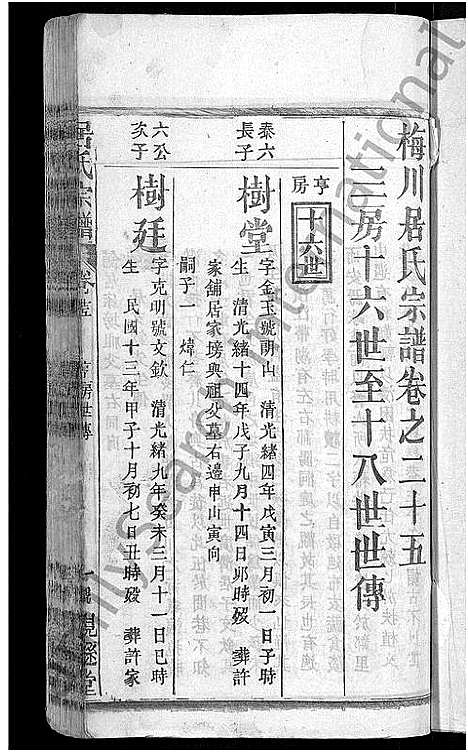 梅川居氏宗譜卷之二十五
三房十六世至十八世世傳
亨房
十六世
泰六長子
樹堂
字金玉號明山 清光緒四年戊寅三月初一日子時
生 清光緒十四年戊子九月十四日卯時殁 葬許
家舖居家塝與祖父墓右邊申山寅向
嗣子一 煒仁
六公次子
樹廷
字克明號文欽 清光緒九年癸未三月十一日巳時
生 民國十三年甲子十月初七日丑時殁 葬許家
居氏宗譜
房世傳
一
堂